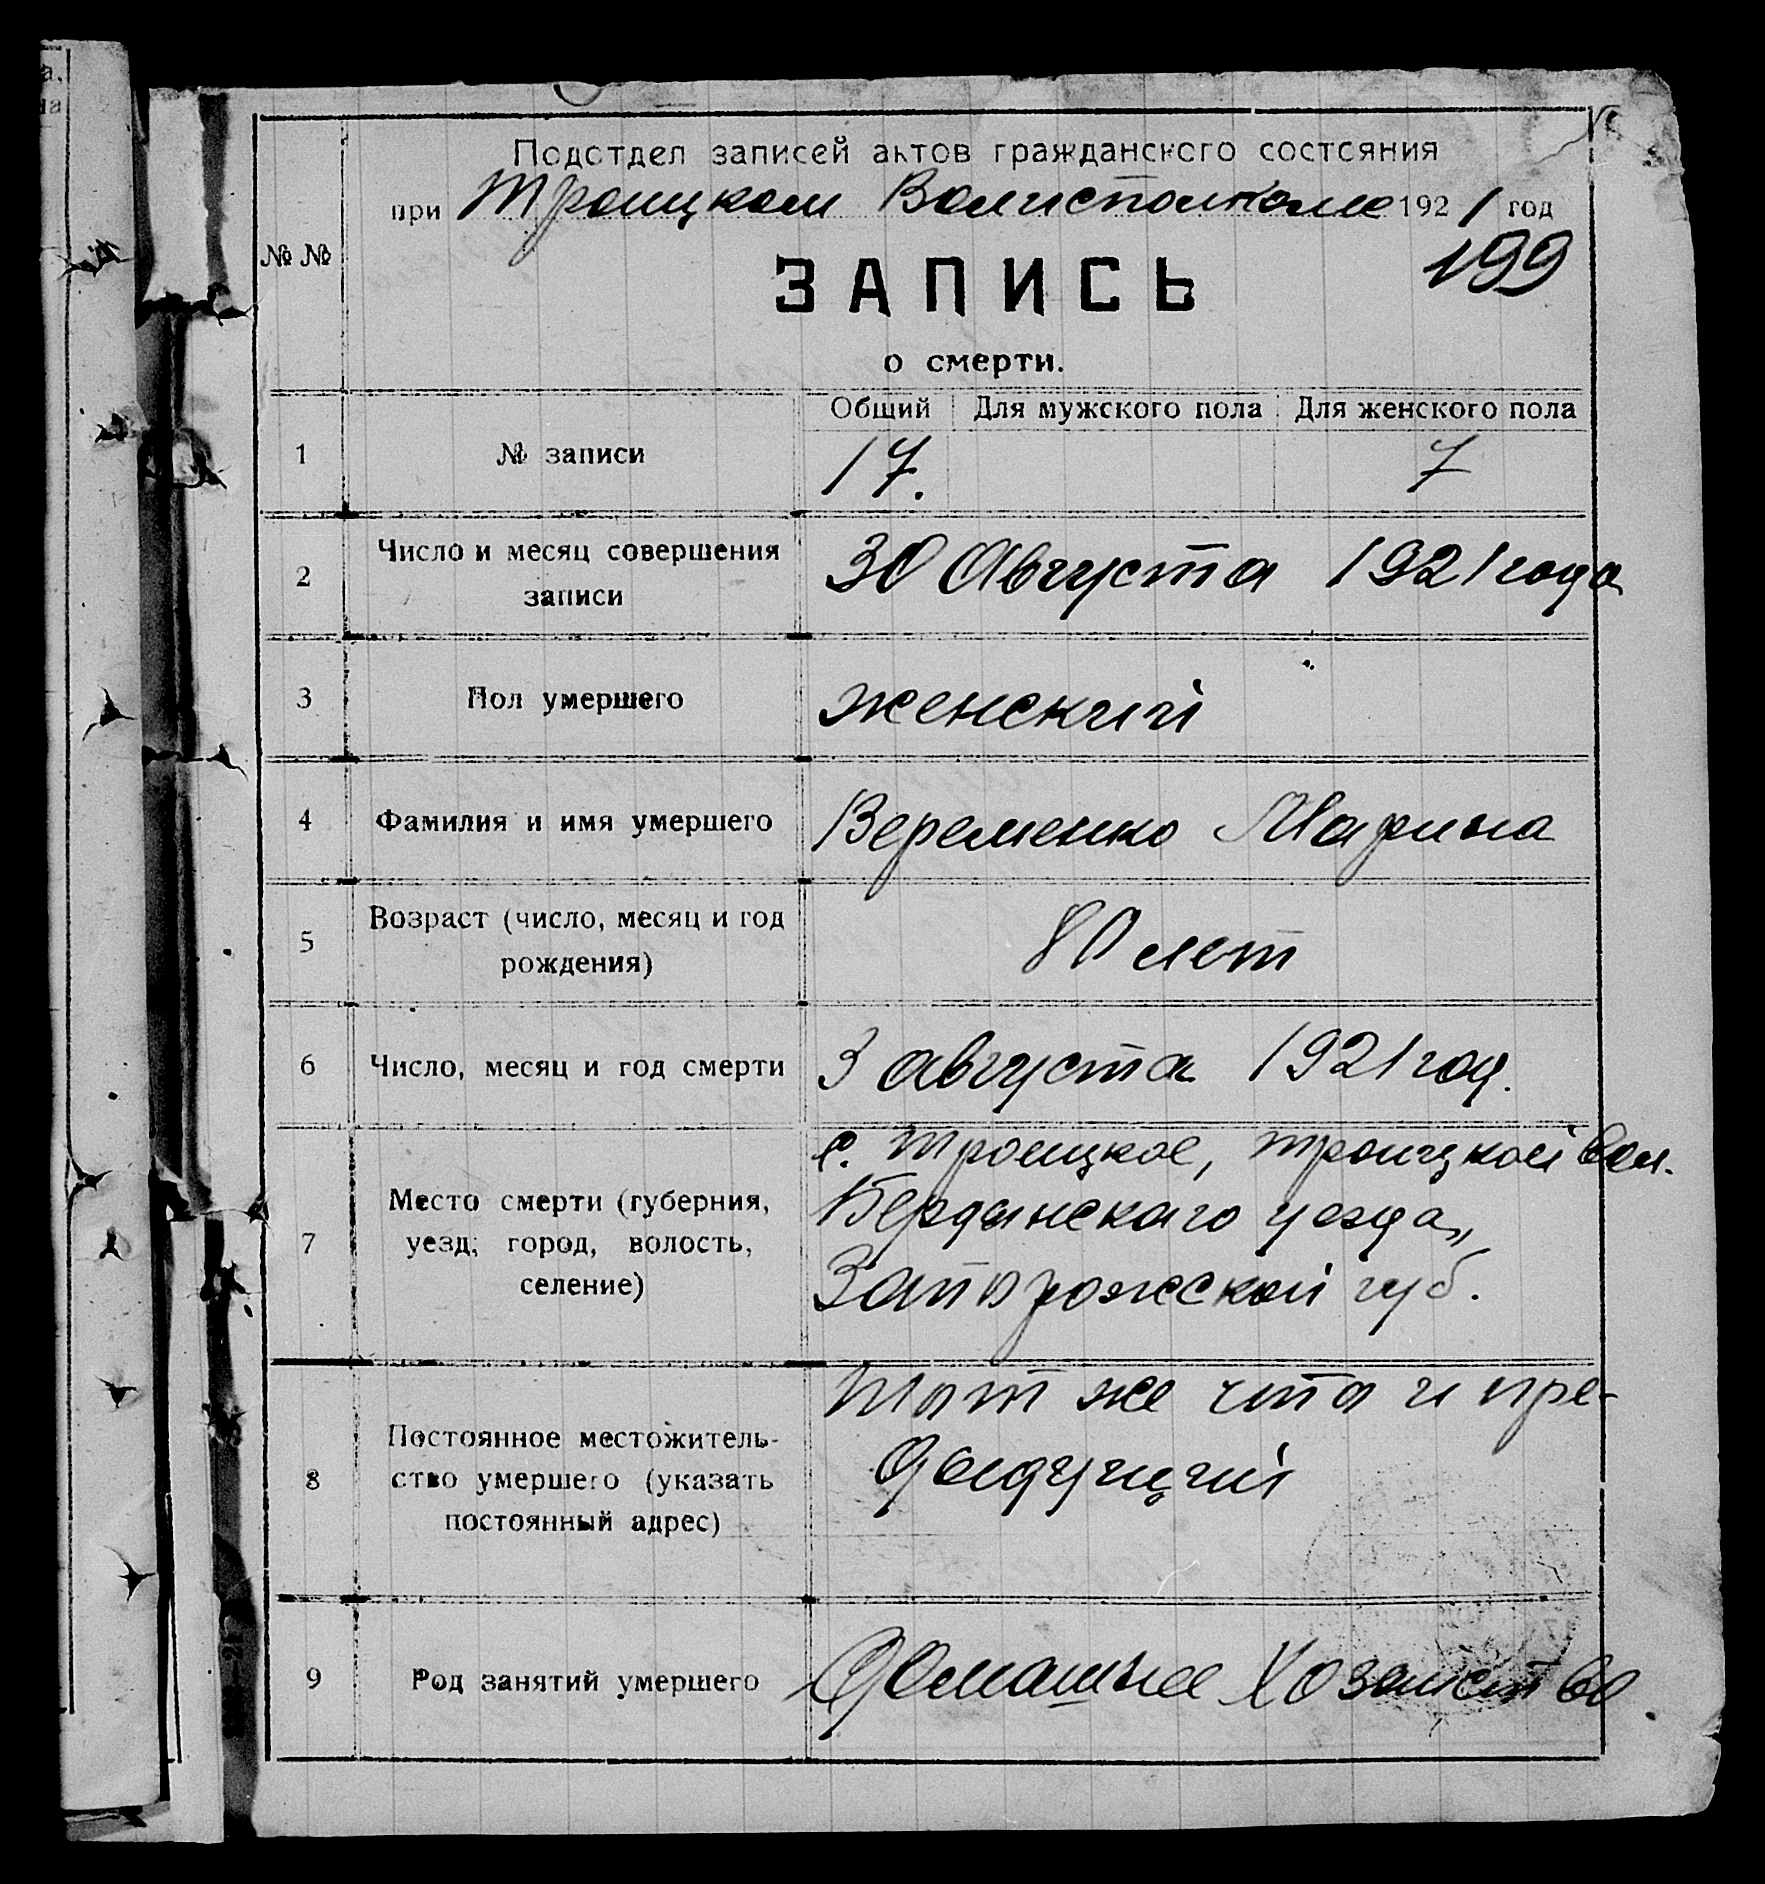 Подотдел записей актов гражданского состояния
при Троицком Волисполкоме 1921 год
199
№ №
ЗАПИСЬ
о смерти.
Общий Для мужского пола Для женского пола
1 № записи 17. 7
2 Число и месяц совершения записи 30 Августа 1921 года
3 Пол умершего женский
4 Фамилия и имя умершего Веременко Марина
5 Возраст (число, месяц и год рождения) 80 лет
6 Число, месяц и год смерти 3 августа 1921 год.
7 Место смерти (губерния, уезд; город, волость, селение)
с. Троицкое, Троицкой вол.
Бердянского уезда,
Запорожской губ.
8 Постоянное местожитель-
ство умершего (указать
постоянный адрес)
Тот же что и пре-
дыдущий
9 Род занятий умершего Домашнее Хозяйство